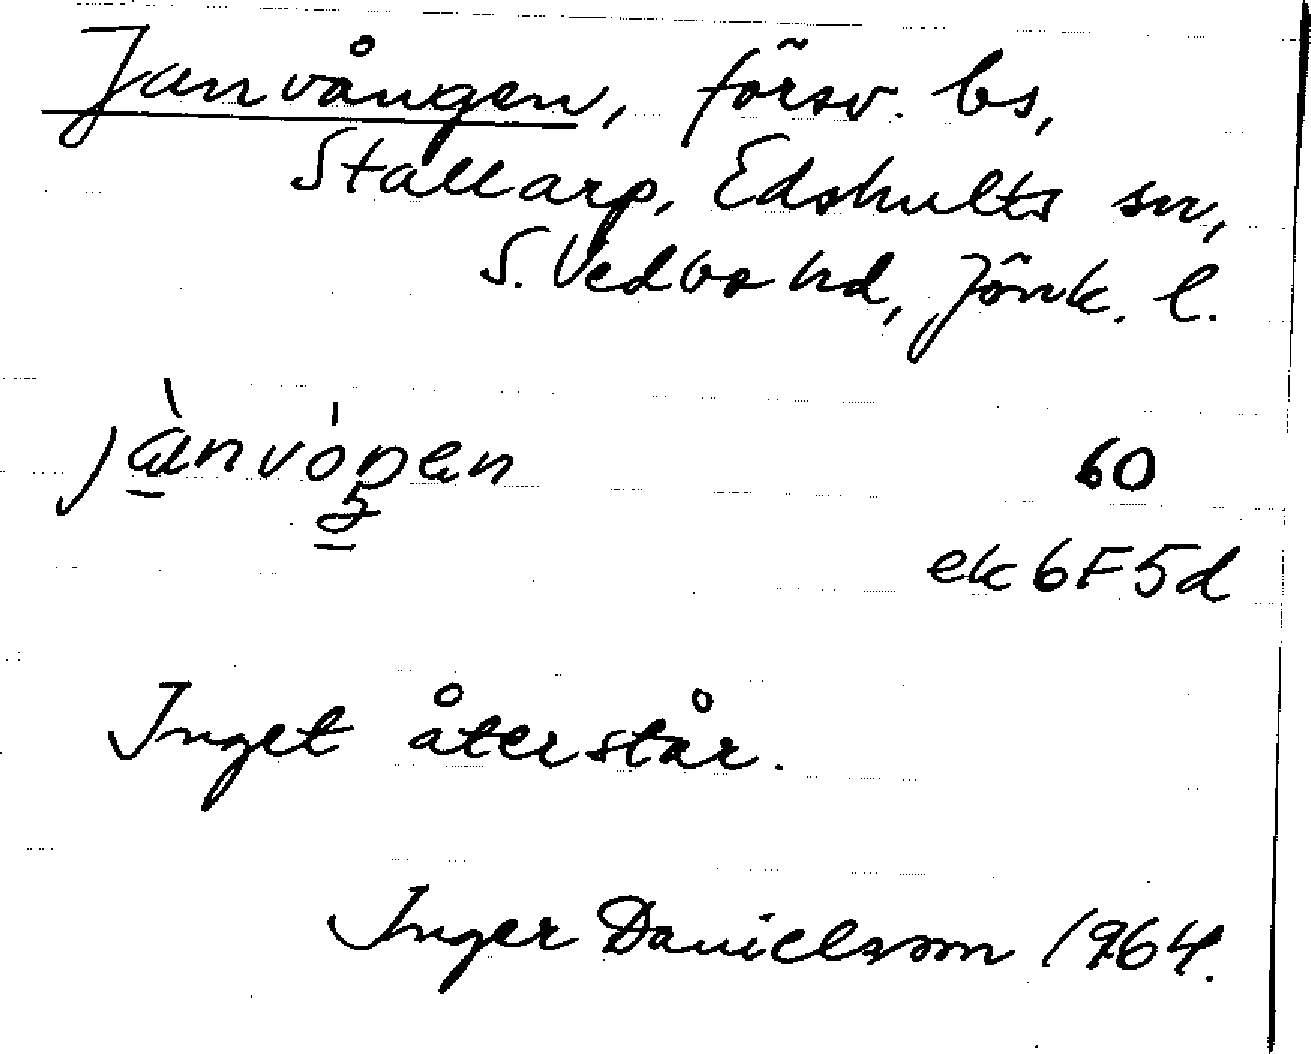 Janvången, försv. bs,
Stallarp, Edshults sn,
S. Vedbo hd, Jönk. l.
jànvóŋen 60
ek 6F5d
Inget återstår.
Inger Danielsson 1964.